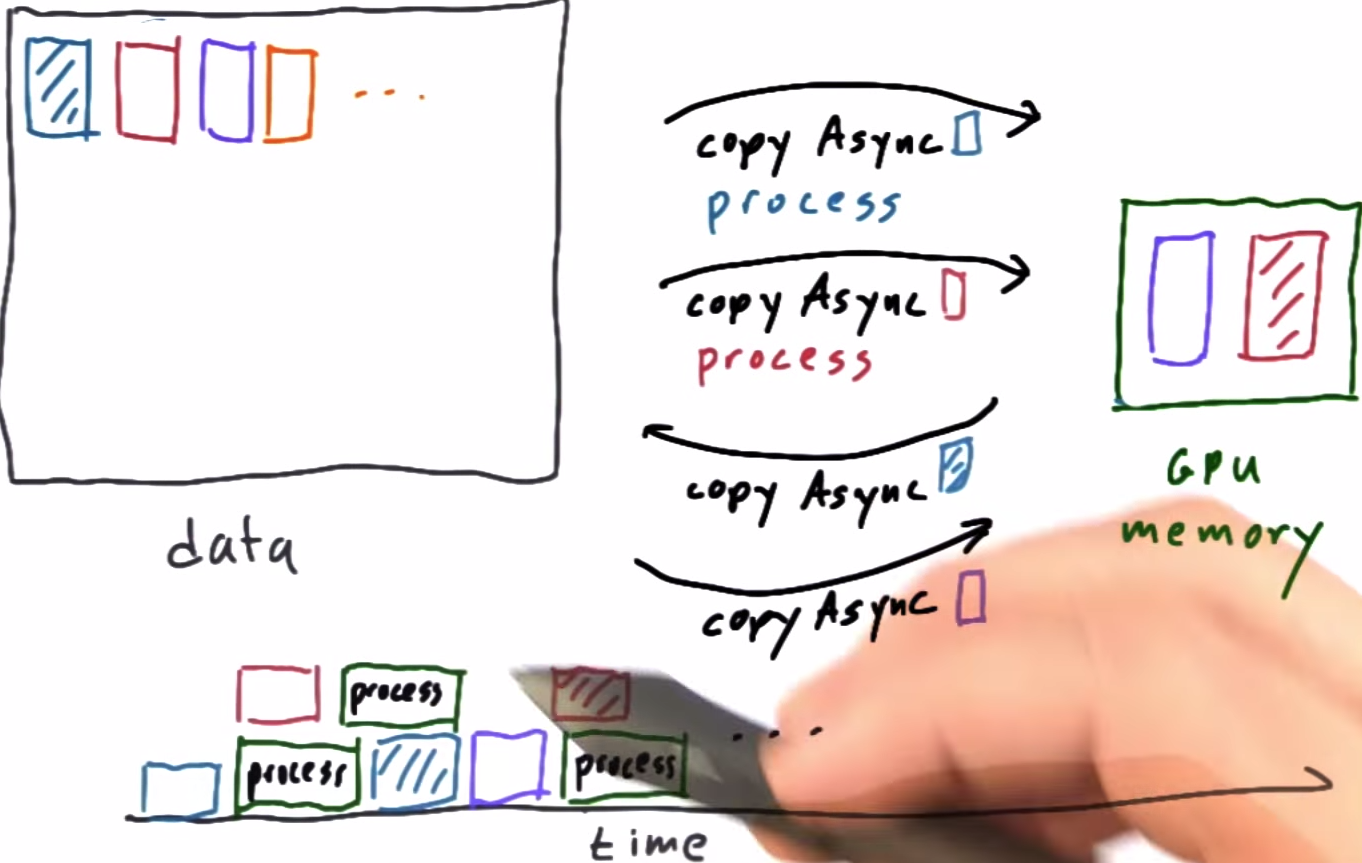 copy Async
process
copy Async
process
copy Async
copy Async
data
GPU
memory
process
process
process
time